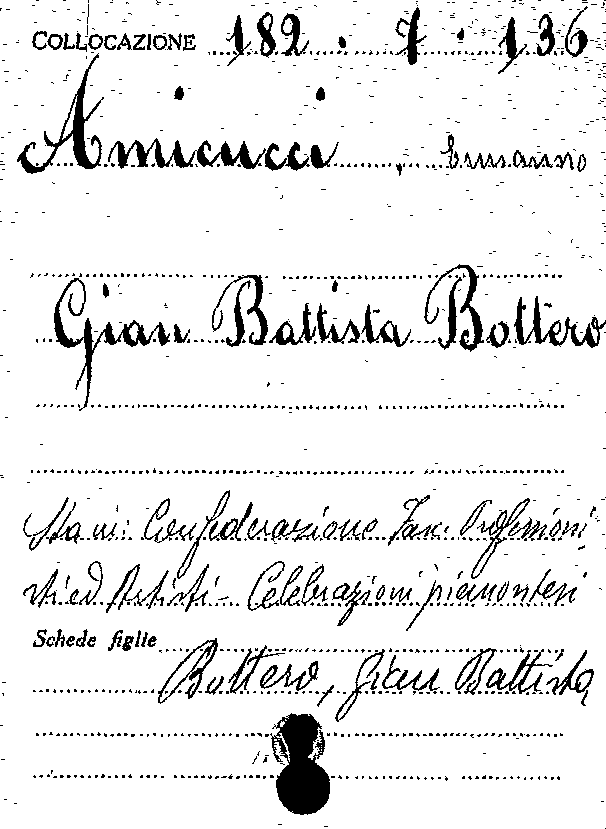 COLLOCAZIONE 182 . 7 . 136
Amicucci, Ermanno
Gian Battista Bottero
Sta in: Confederazione Fasc. Professioni
sti ed Artisti - Celebrazioni piemontesi
Schede figlie
Bottero, Gian Battista